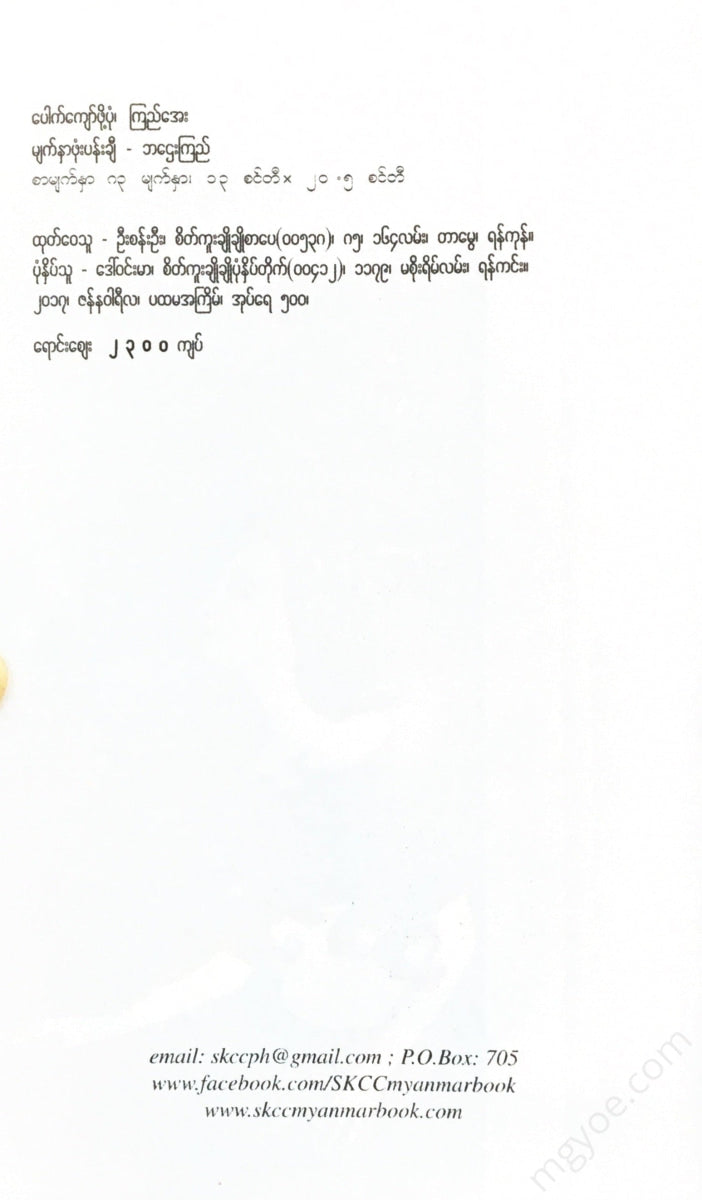 ပေါက်ကျော်ဖို့ပုံ၊ ကြည်အေး
မျက်နှာဖုံးပန်းချီ - ဘဌေးကြည်
စာမျက်နှာ ၈၃ မျက်နှာ၊ ၁၃ စင်တီ× ၂၀.၅ စင်တီ
ထုတ်ဝေသူ - ဦးစန်းဦး၊ စိတ်ကူးချိုချိုစာပေ(၀၀၅၃၈)၊ ၈၅၊ ၁၆၄လမ်း၊ တာမွေ၊ ရန်ကုန်။
ပုံနှိပ်သူ - ဒေါ်ဝင်းမာ၊ စိတ်ကူးချိုချိုပုံနှိပ်တိုက်(၀၀၄၁၂)၊ ၁၁၇၉၊ မစိုးရိမ်လမ်း၊ ရန်ကင်း။
၂၀၁၇၊ ဇန်နဝါရီလ၊ ပထမအကြိမ်၊ အုပ်ရေ ၅၀၀၊
ရောင်းဈေး ၂၃၀၀ ကျပ်
email: skccph@gmail.com ; P.O.Box: 705
www.facebook.com/SKCCmyanmarbook
www.skccmyanmarbook.com
mgyoe.com